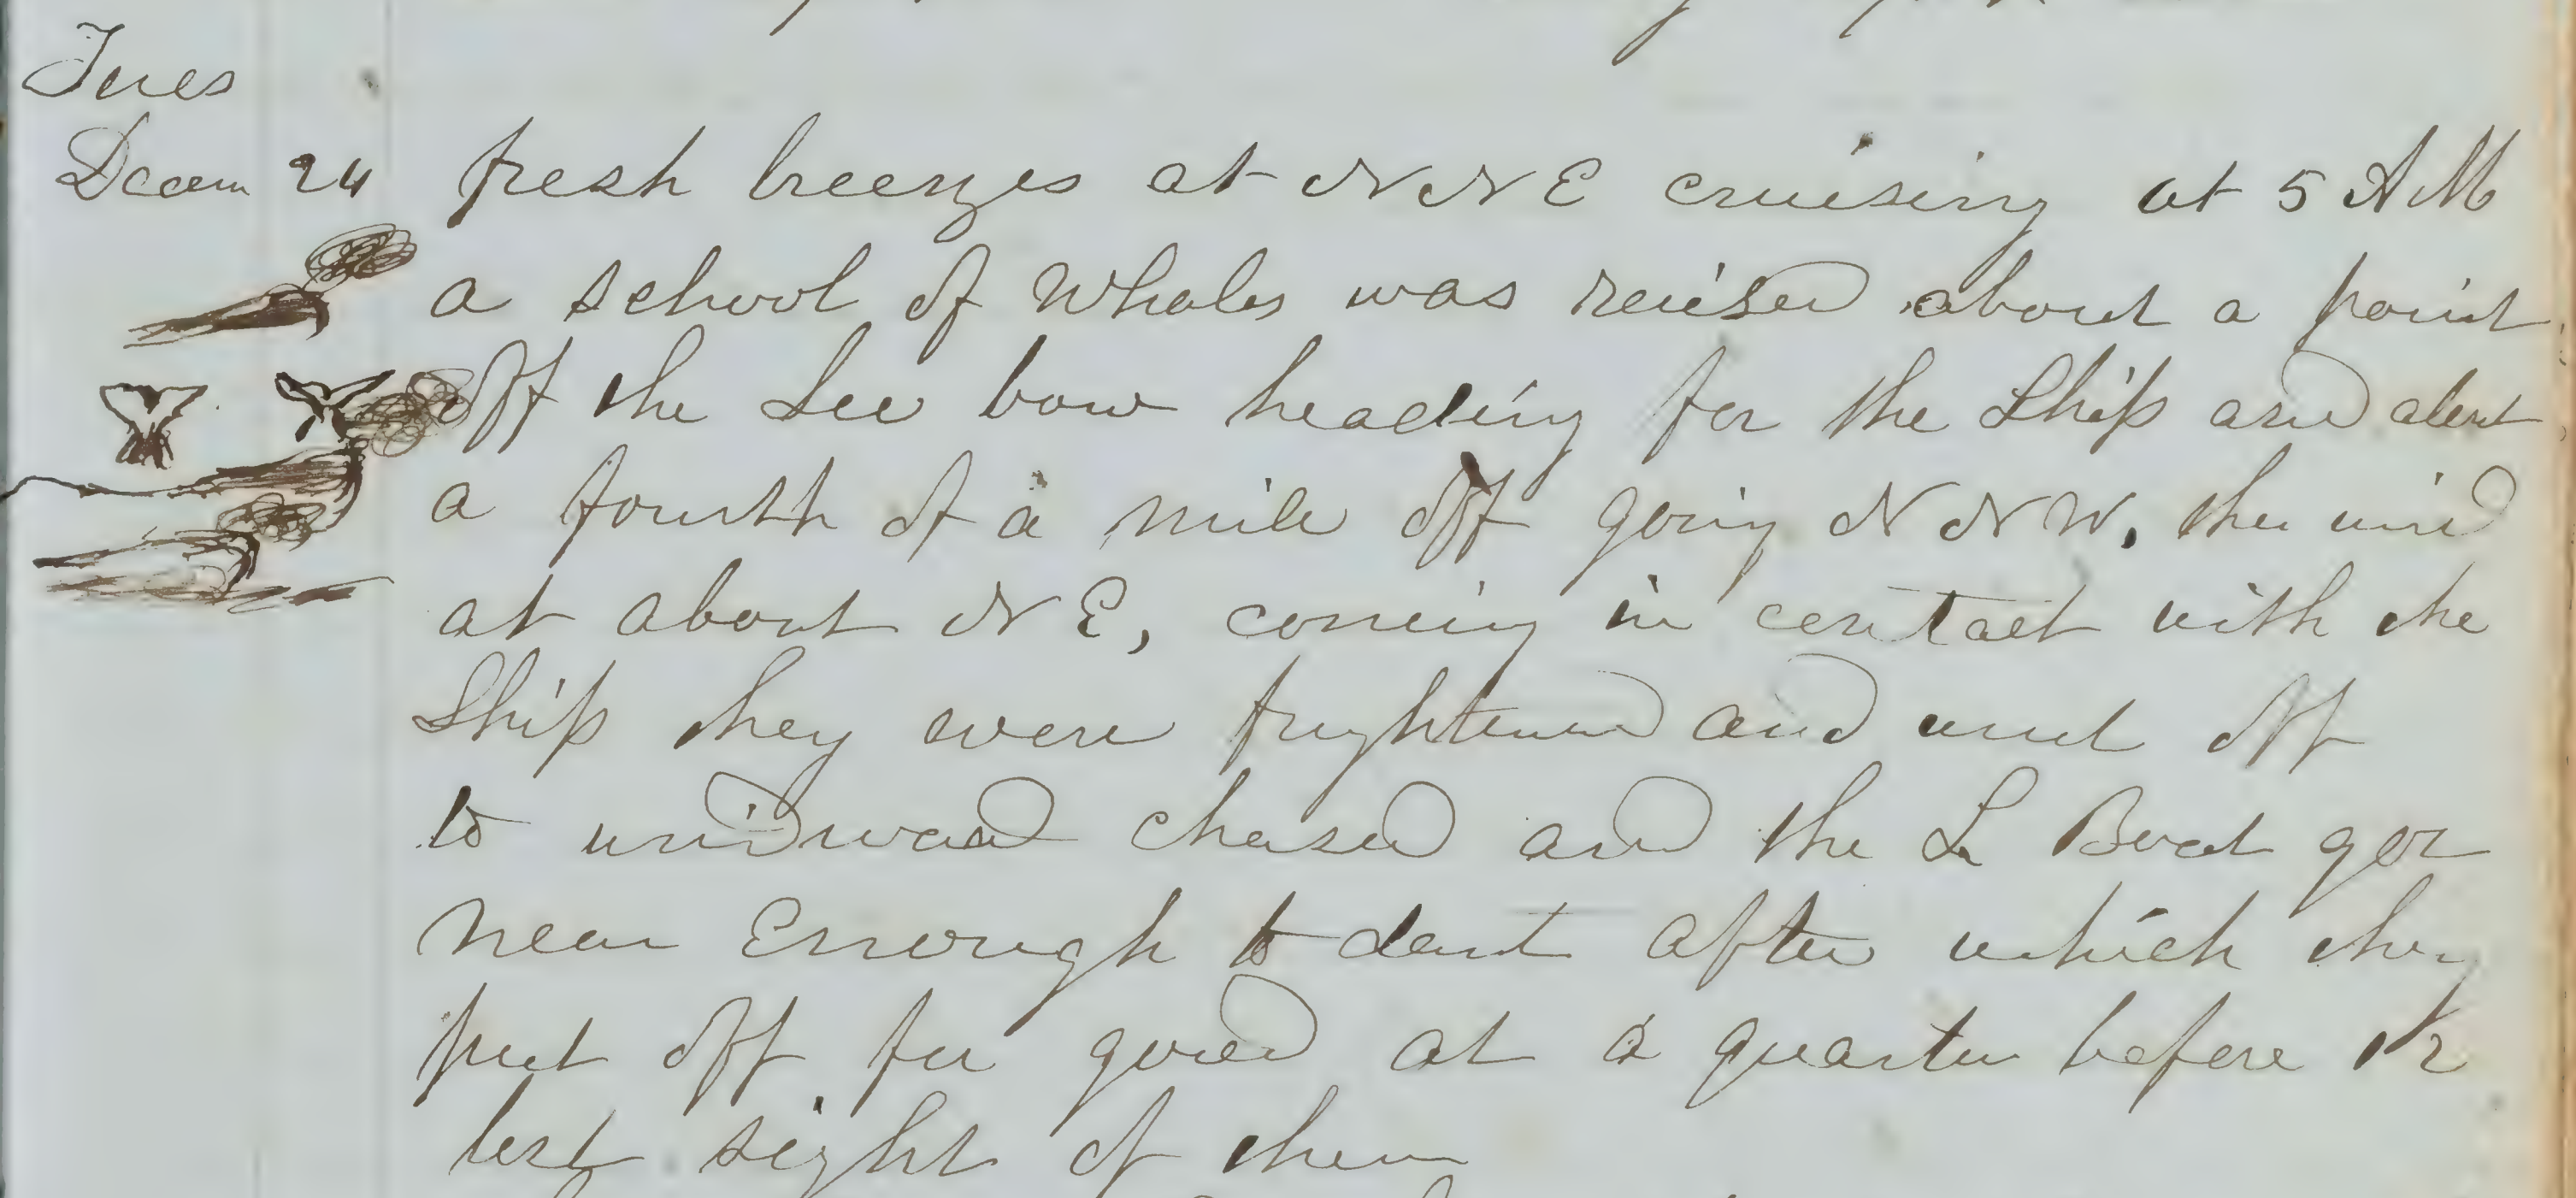 Tues
Decem 24 fresh breezes at N N E cruising at 5 A M
a school of Whales was raised about a point
off the Lee bow heading for the Ship and about
a fourth of a mile off going N N W, the wind
at about N E, coming in contact with the
Ship they were frightened and went off
to windward chased and the L Boat got
near Enough to dart after which they
put off for good at a quarter before 12
lost sight of them